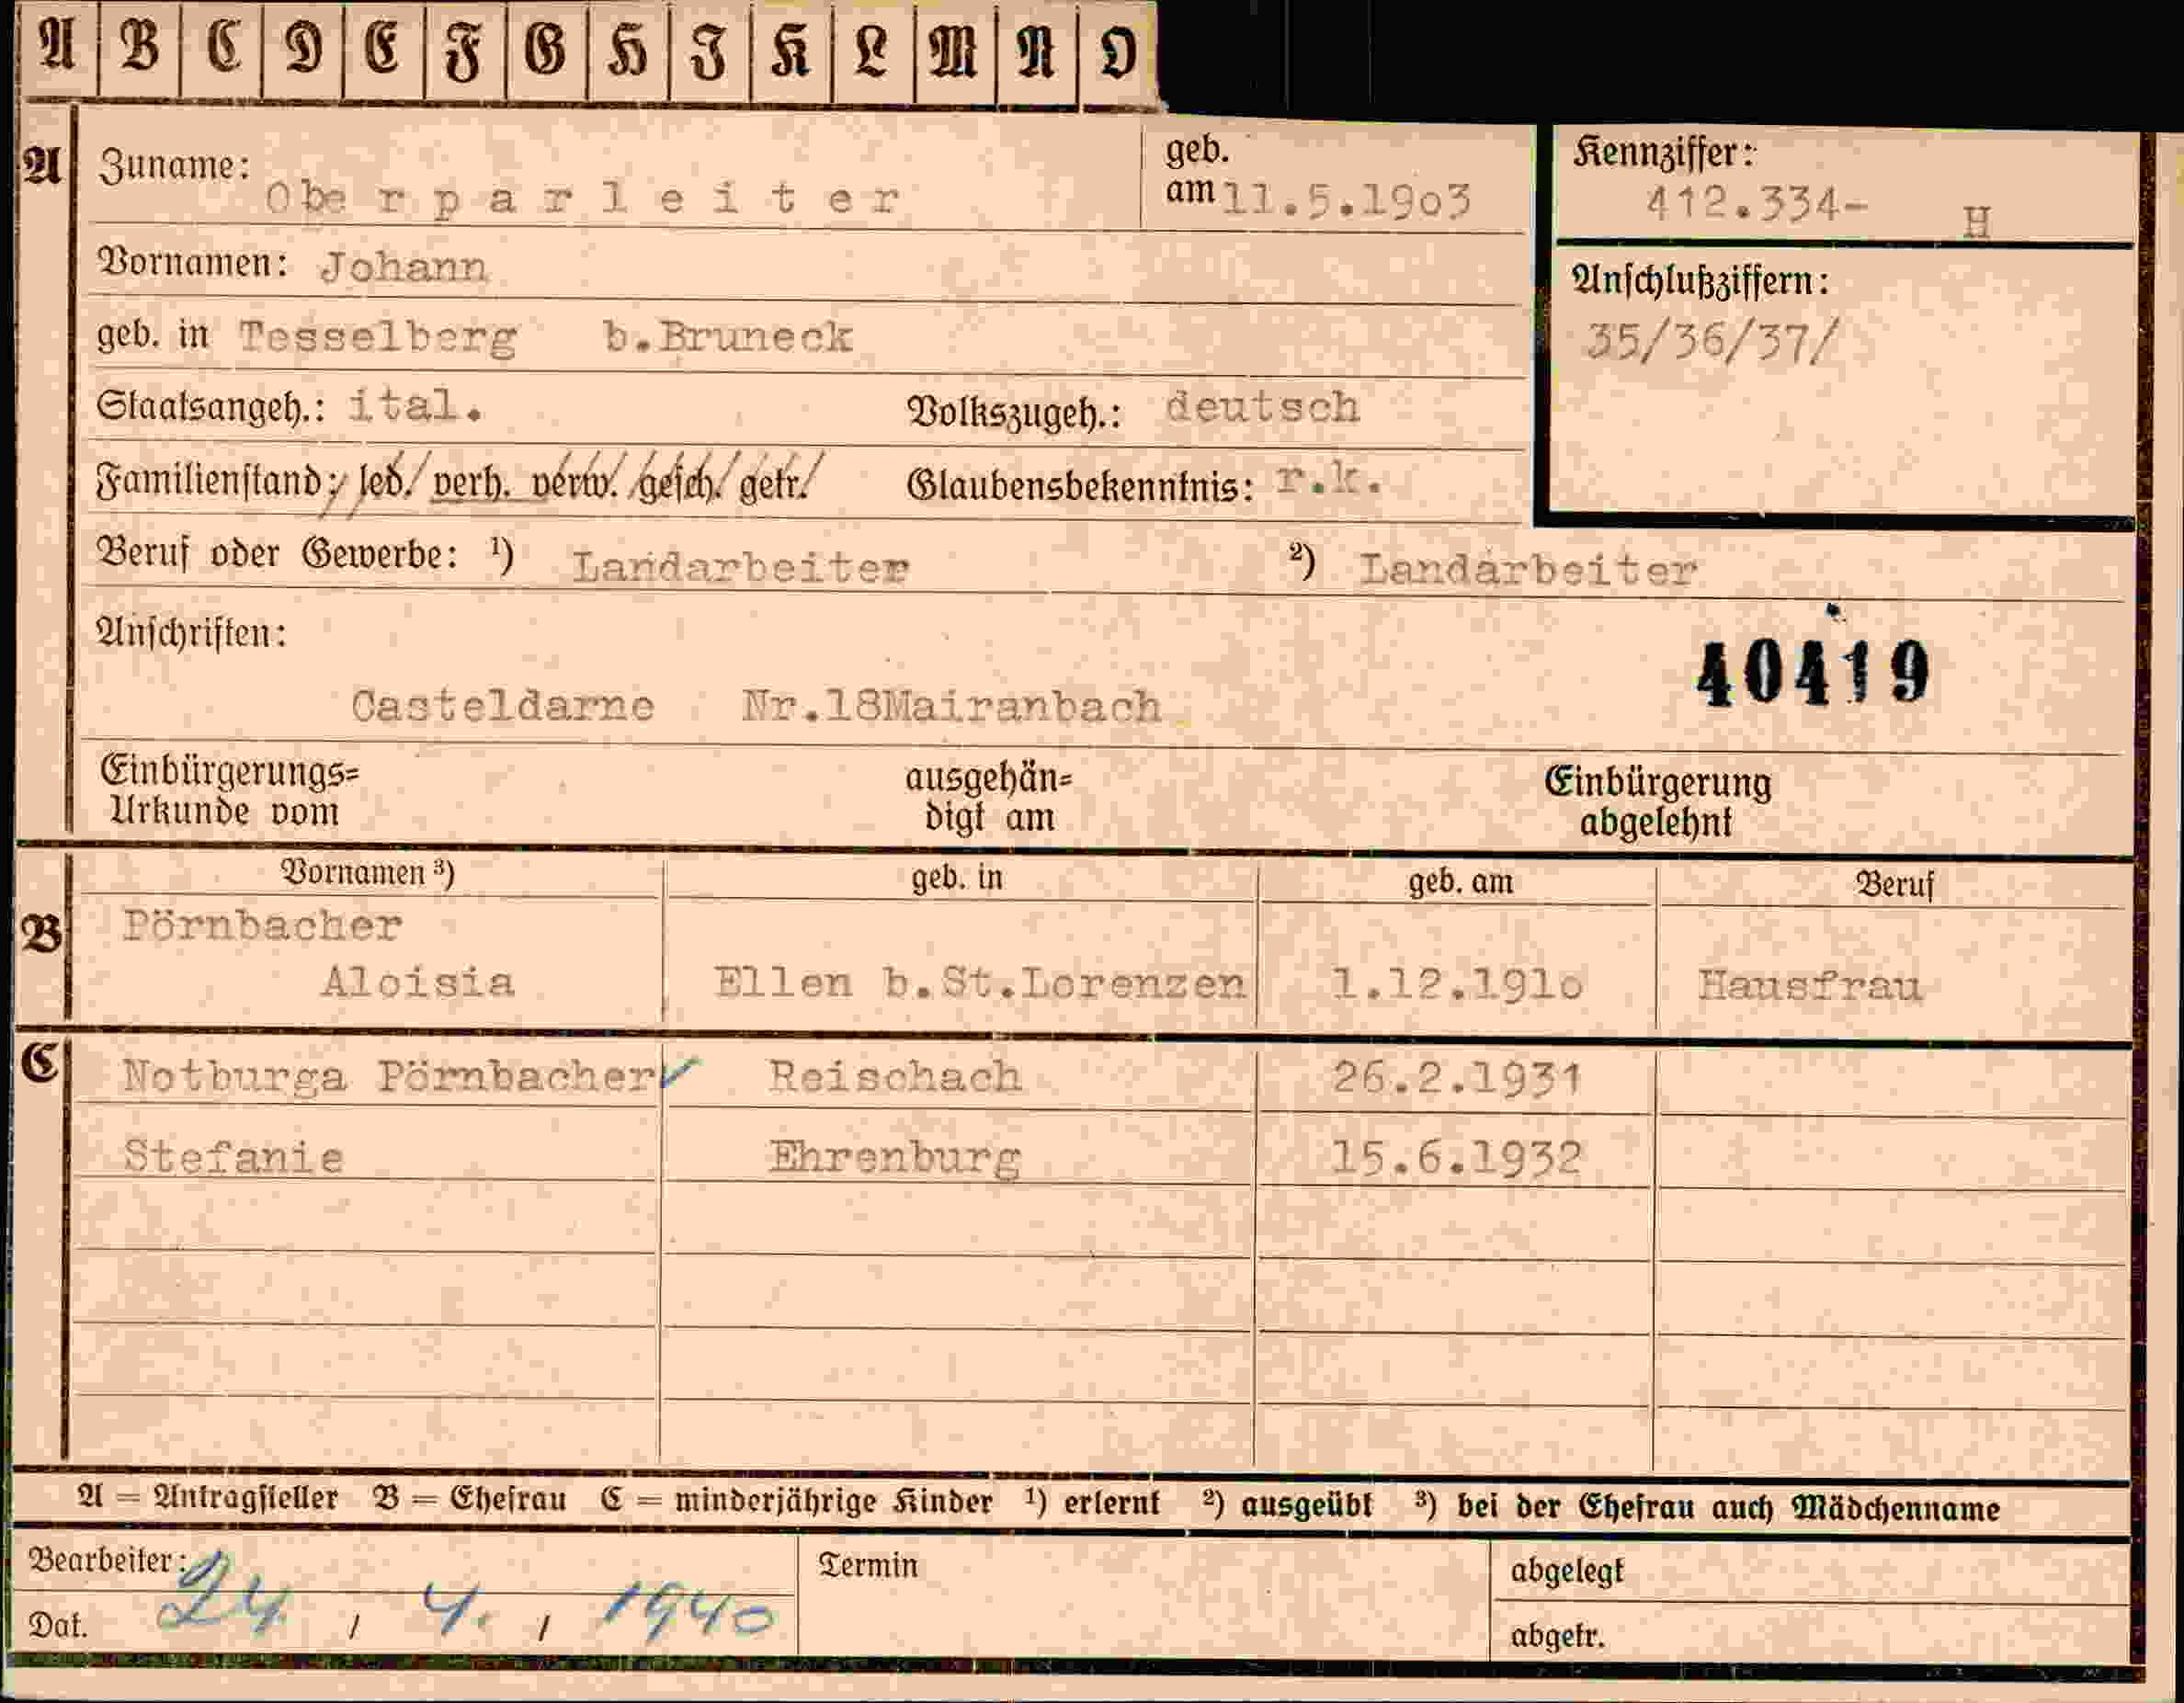 A B C D E F G H I K L M N O
A Zuname: Oberparleiter geb. am 11.5.1903 Kennziffer: 412.334- H
Vornamen: Johann Anschlußziffern:
geb. in Tesselberg b.Bruneck 35/36/37/
Staatsangeh.: ital. Volkszugeh.: deutsch
Familienstand: led. verh. verw. gesch. getr. Glaubensbekenntnis: r.k.
Beruf oder Gewerbe: ¹) Landarbeiter ²) Landarbeiter
Anschriften: 40419
Casteldarne Nr.18Mairanbach
Einbürgerungs= ausgehän= Einbürgerung
Urkunde vom digt am abgelehnt
Vornamen ³) geb. in geb. am Beruf
B Pörnbacher
Aloisia Ellen b.St.Lorenzen 1.12.1910 Hausfrau
C Notburga Pörnbacher ✓ Reischach 26.2.1931
Stefanie Ehrenburg 15.6.1932
A = Antragsteller B = Ehefrau C = minderjährige Kinder ¹) erlernt ²) ausgeübt ³) bei der Ehefrau auch Mädchenname
Bearbeiter: Termin abgelegt
Dat. 24 / 4. / 1940 abgetr.